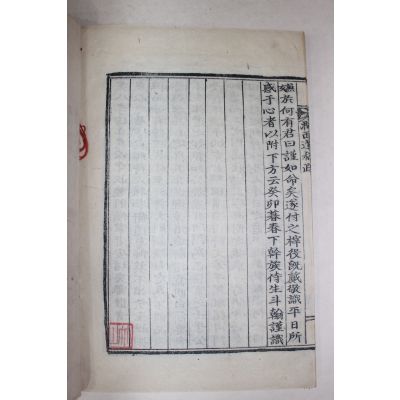 嫌於何有君曰謹如命矣遂付之梓役旣蕆撥識平日所
感于心者以附下方云癸卯暮春下幹族侍生斗翰謹識